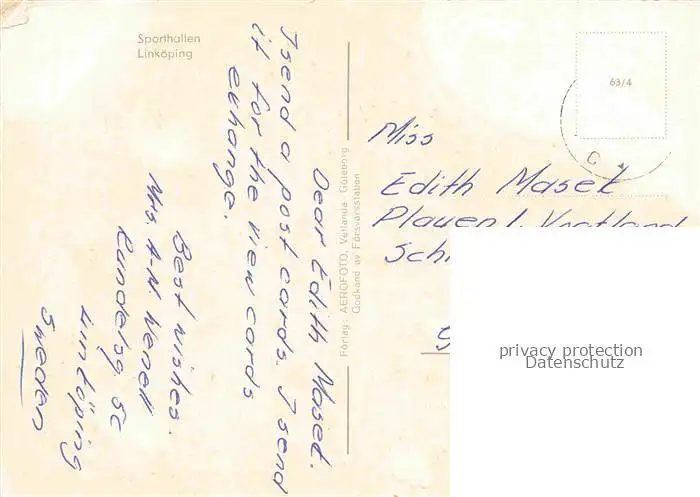 Sporthallen
Linköping
63/4
Dear Edith Maset.
I send a post cards. I send
it for the view cards
exhange.
Best wishes.
Mrs. A-N.
5c
Linköping
Sweden
Förlag: AEROFOTO, Vetlanda Göteborg
Godkänd av Försvarsstaben
Miss
Edith Maset
Plauen I. Vogtland
privacy protection
Datenschutz